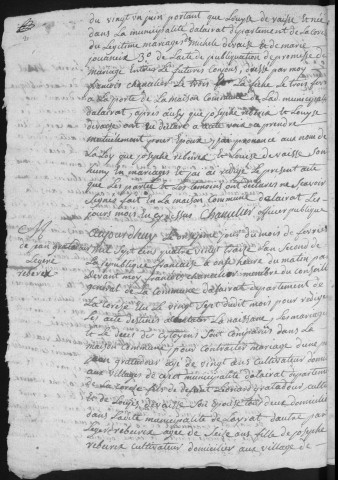 du vingt un juin portant que Louyse devaisse est née
dans la municipalité dalairat département de la corèze
du légitime mariage Michele devaisse et de marie
jouanie 3° de lacte de publiquation de promesse de
mariage entre les futures conjoins, dressé par moy
francois chanelier le trois
a la porte de la maison commune de lad municipalité
dalairat, après aussy que josephe rebeirix et Louyse
devaisse ont déclaré a haute voix ce prendre
mutuelement pour Epoux, jai prononcé aux nom de
la Loy que josephe rebeirix et Louise devaisse sont
huny en mariage et jai rédigé le présent acte
que les partie et les témoins ont déclaré ne scavoir
signer fait en la maison commune dalairat les
jours mois an que dessus Chanelier officier publique
aujourdhuy onzième jour du mois de fevrier
jean gratadour
Legère
rebeirix
mil sept cens quatre vingt treize lan second de
la république française a onze heure du matin par
devant moy francois chanelier membre du conseill
general de la commune dalairat département de
la corèze élu le vingt sept dudit mois pour rédiger
le acte destinés a constater la naissance, les mariage
et le décès de cytoyens sont comparus dans la
maison commune pour contracter mariage dune
jean gratadour agé de vingt ans cultivateur domicilié
aux village de municipalité dalairat département
de la corèze fils de defunt Léonard gratadour, cultivateur
et de Louise devaisse son epouse tout deux domicilies
dans ladite municipalité de Layrat dautre part
Legère rebeirix agée de seize ans fille de josephe
rebeirix cultivateur domicilier aux village de